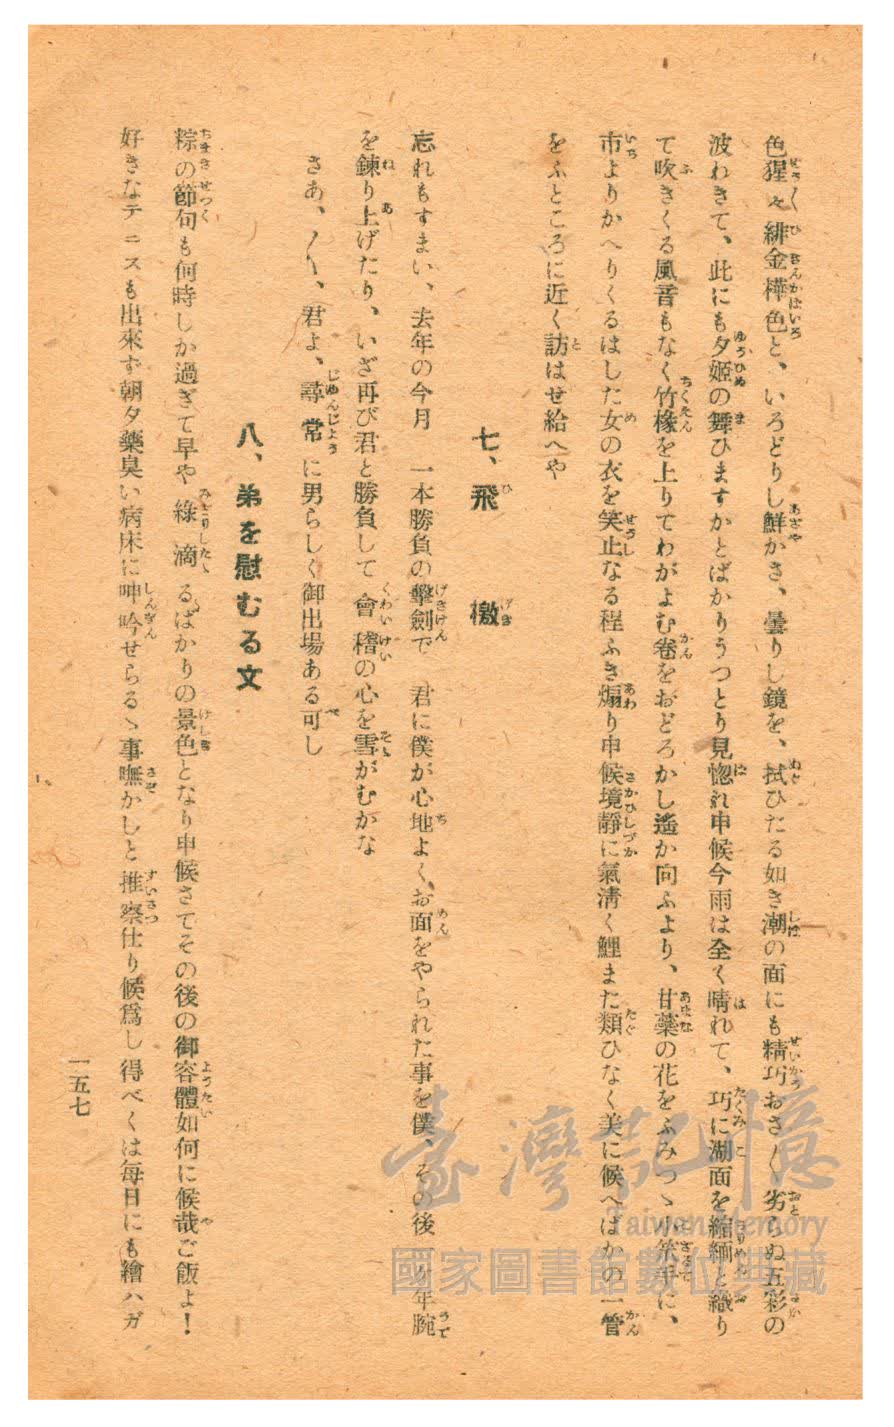 色猩々緋金樺色と、いろどりし鮮かさ、曇りし鏡を、拭ひたる如き潮の面にも精巧おさ〱劣らぬ五彩の
波わきて、此にも夕姫の舞ひますかとばかりうつとり見惚れ申候今雨は全く晴れて、巧に湖面を縮緬と織り
て吹きくる風音もなく竹椽を上りてわがよむ卷をおどろかし遙か向ふより、甘藥の花をふみつゝ小笊手に、
市よりかへりくるはした女の衣を笑止なる程ふき煽り申候境靜に氣淸く鯉また類ひなく美に候へばかの一管
をふところに近く訪はせ給へや
七、飛檄
忘れもすまい、去年の今月 一本勝負の擊劍で 君に僕が心地よく、お面をやられた事を僕、その後 年腕
を鍊り上げたり、いざ再び君と勝負して會稽の心を雪がむかな
さあ、〱、君よ、尋常に男らしく御出場ある可し
八、弟を慰むる文
粽の節句も何時しか過ぎて早や綠滴るばかりの景色となり申候さてその後の御容體如何に候哉ご飯よ！
好きなテニスも出來ず朝夕藥臭い病床に呻吟せらるゝ事嘸かしと推察仕り候爲し得べくは每日にも繪ハガ
一五七
臺灣記憶
Taiwan Memory
國家圖書館數位典藏